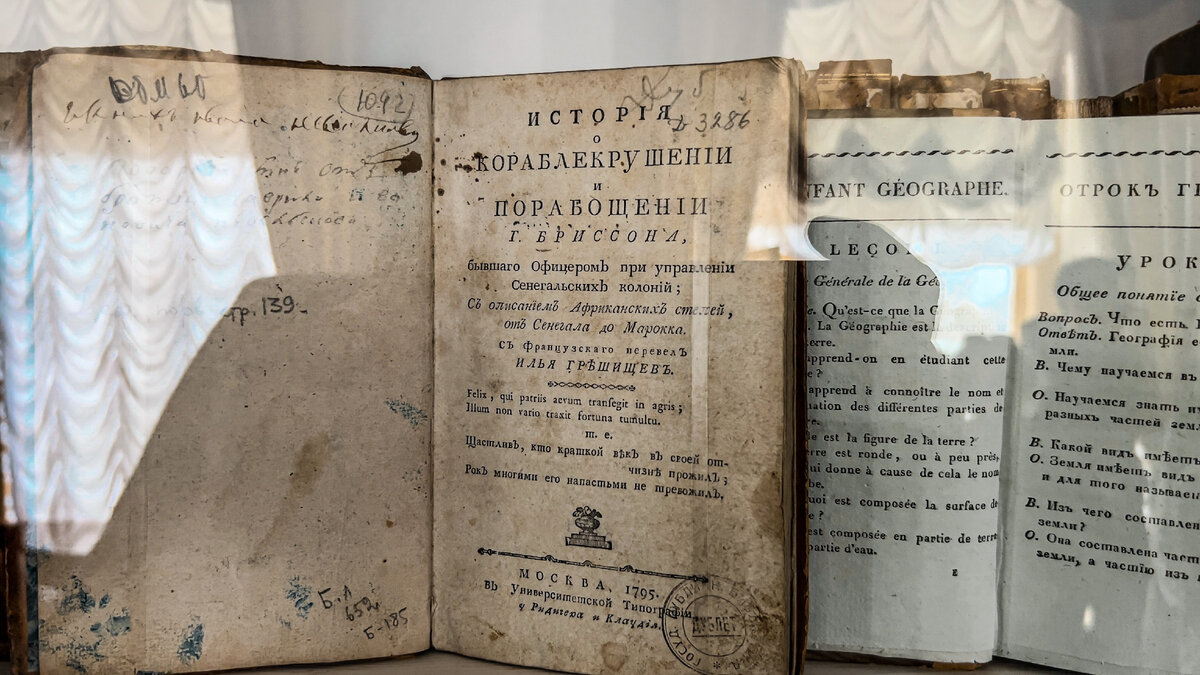 (1092)
стр. 139.
Б. А
652
Б-185
№ 3286
ИСТОРІЯ
О
КОРАБЛЕКРУШЕНІИ
И
ПОРАБОЩЕНІИ
Г. БРИССОНА,
бывшаго Офицеромъ при управленіи
Сенегальскихъ колоній;
Съ описаніемъ Африканскихъ степей,
отъ Сенегала до Марокка.
Съ Французскаго перевелъ
ИЛЬЯ ГРѢШИЩЕВЪ.
Felix, qui patriis aevum transegit in agris;
Illum non vario traxit fortuna tumultu.
т. е.
Щастливъ, кто краткой вѣкъ въ своей от-
чизнѣ прожилъ;
Рокъ многими его напастьми не тревожилъ.
МОСКВА, 1795.
въ Университетской Типографіи,
у Ридигера и Клаудія.
ДУБЛЕТ
NFANT GÉOGRAPHE.
LEÇO
Générale de la Géo
Qu'est-ce que la Géographie
La Géographie est la descript
erre.
apprend-on en étudiant cette
e?
apprend à connoître le nom et
uation des différentes parties de
re.
le est la figure de la terre?
rre est ronde, ou à peu près,
ui donne à cause de cela le nom
be.
uoi est composée la surface de
e?
est composée en partie de terre
partie d'eau.
E
ОТРОКЪ Г
УРОК
Общее понятіе
Вопросъ. Что есть
Отвѣтъ. Географія е
мли.
В. Чему научаемся въ
О. Научаемся знать и
разныхъ частей земл
В. Какой видъ имѣетъ
О. Земля имѣетъ видъ
и для того называеш
В. Изъ чего составлен
земли?
О. Она составлена част
земли, а частію изъ